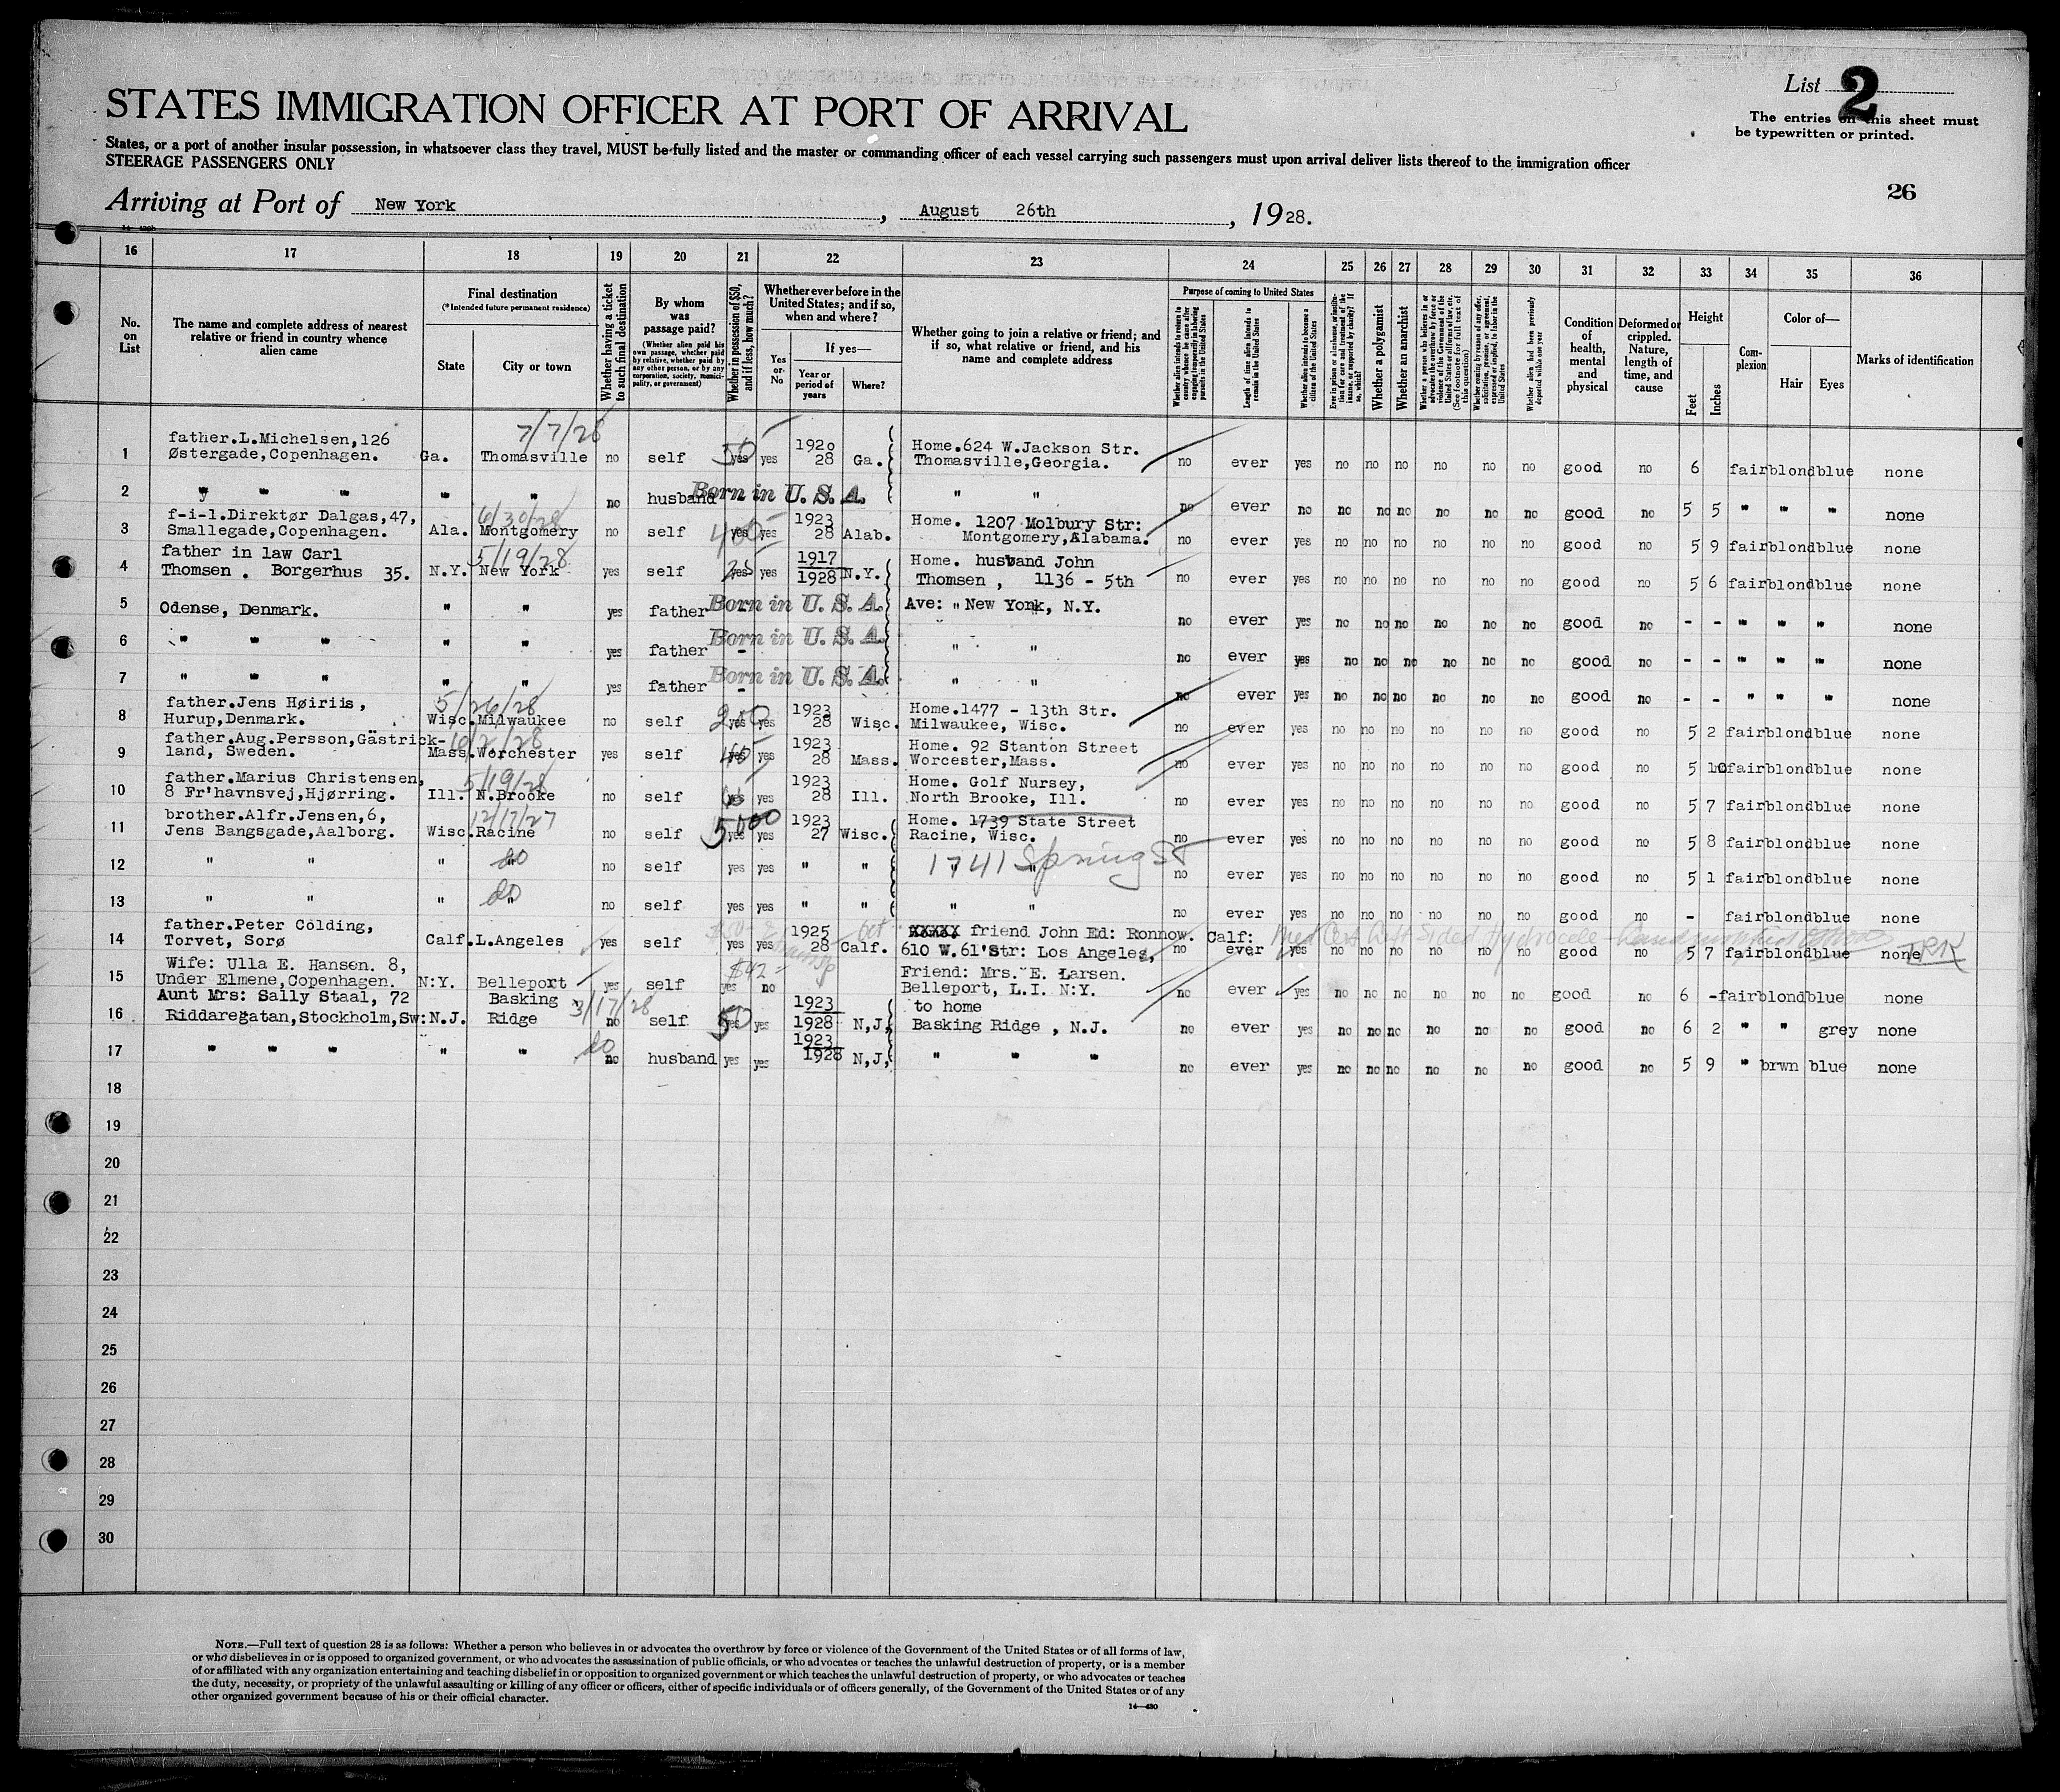 List 2
The entries on this sheet must
be typewritten or printed.
STATES IMMIGRATION OFFICER AT PORT OF ARRIVAL
States, or a port of another insular possession, in whatsoever class they travel, MUST be fully listed and the master or commanding officer of each vessel carrying such passengers must upon arrival deliver lists thereof to the immigration officer
STEERAGE PASSENGERS ONLY
26
Arriving at Port of New York, August 26th, 1928.
16 17 18 19 20 21 22 23 24 25 26 27 28 29 30 31 32 33 34 35 36
No. on List
The name and complete address of nearest relative or friend in country whence alien came
Final destination
(*Intended future permanent residence)
State
City or town
Whether having a ticket to such final destination
By whom was passage paid?
(Whether alien paid his own passage, whether paid by relative, whether paid by any other person, or by any corporation, society, municipality, or government)
Whether in possession of $50, and if less, how much?
Whether ever before in the United States; and if so, when and where?
Yes or No
If yes—
Year or period of years
Where?
Whether going to join a relative or friend; and if so, what relative or friend, and his name and complete address
Purpose of coming to United States
Length of time alien intends to remain in the United States
Whether alien intends to become a citizen of the United States
Whether a polygamist
Whether an anarchist
Condition of health, mental and physical
Deformed or crippled. Nature, length of time, and cause
Height
Feet
Inches
Complexion
Color of—
Hair
Eyes
Marks of identification
7/7/28
1 father.L.Michelsen,126 Østergade,Copenhagen. Ga. Thomasville no self 50 yes yes 1920 28 Ga. Home.624 W.Jackson Str. Thomasville,Georgia. no ever yes no no no no no no good no 6 fair blond blue none
2 " " " " " no husband - Born in U. S. A. " " no ever no no no no no no no good no 5 5 " " " none
6/30/28
3 f-i-l.Direktør Dalgas,47, Smallegade,Copenhagen. Ala. Montgomery no self 400 yes yes 1923 28 Alab. Home. 1207 Molbury Str: Montgomery,Alabama. no ever yes no no no no no no good no 5 9 fair blond blue none
5/19/28
4 father in law Carl Thomsen . Borgerhus 35. N.Y. New York yes self yes yes 1917 1928 N.Y. Home. husband John Thomsen , 1136 - 5th no ever yes no no no no no no good no 5 6 fair blond blue none
5 Odense, Denmark. " " yes father - Born in U. S. A. Ave: " New York, N.Y. no ever yes no no no no no no good no - - " " " none
6 " " " " " yes father - Born in U. S. A. " " no ever yes no no no no no no good no - - " " " none
7 " " " " " yes father - Born in U. S. A. " " no ever yes no no no no no no good no - - " " " none
5/26/28
8 father.Jens Høiriis, Hurup,Denmark. Wisc. Milwaukee no self 250 yes yes 1923 28 Wisc. Home.1477 - 13th Str. Milwaukee, Wisc. no ever yes no no no no no no good no 5 2 fair blond blue none
9 father.Aug.Persson,Gästrick-land, Sweden. Mass. Worchester yes self yes yes 1923 28 Mass. Home. 92 Stanton Street Worcester,Mass. no ever yes no no no no no no good no 5 10 fair blond blue none
5/19/28
10 father.Marius Christensen, 8 Fr'havnsvej,Hjørring. Ill. N.Brooke no self yes yes 1923 28 Ill. Home. Golf Nursey, North Brooke, Ill. no ever yes no no no no no no good no 5 7 fair blond blue none
12/17/27
11 brother.Alfr.Jensen,6, Jens Bangsgade,Aalborg. Wisc. Racine no self 5000 yes yes 1923 27 Wisc. Home. 1739 State Street Racine, Wisc. no ever yes no no no no no no good no 5 8 fair blond blue none
12 " " " do no self yes yes " " 1741 Spring St no ever yes no no no no no no good no 5 1 fair blond blue none
13 " " " do no self yes yes " " " " no ever yes no no no no no no good no - fair blond blue none
14 father.Peter Colding, Torvet, Sorø Calf. L.Angeles yes self yes yes 1925 28 Calf. friend John Ed: Ronnow. 610 W.61'Str: Los Angeles, Calf: Med Cert Left Sided Hydrocele no ever yes no no no no no no good no 5 7 fair blond blue none
15 Wife: Ulla E. Hansen. 8, Under Elmene,Copenhagen. N:Y. Belleport yes self $42 yes no Friend: Mrs. E. Larsen. Belleport, L.I. N:Y. no ever yes no no no no no no good no 6 - fair blond blue none
3/17/28
16 Aunt Mrs: Sally Staal, 72 Riddaregatan,Stockholm,Sw: N.J. Basking Ridge no self 50 yes yes 1923 1928 N,J, to home Basking Ridge , N.J. no ever yes no no no no no no good no 6 2 " " grey none
17 " " " " " do no husband yes yes 1923 1928 N,J, " " " no ever yes no no no no no no good no 5 9 " brwn blue none
18
19
20
21
22
23
24
25
26
27
28
29
30
NOTE.—Full text of question 28 is as follows: Whether a person who believes in or advocates the overthrow by force or violence of the Government of the United States or of all forms of law,
or who disbelieves in or is opposed to organized government, or who advocates the assassination of public officials, or who advocates or teaches the unlawful destruction of property, or is a member
of or affiliated with any organization entertaining and teaching disbelief in or opposition to organized government or which teaches the unlawful destruction of property, or who advocates or teaches
the duty, necessity, or propriety of the unlawful assaulting or killing of any officer or officers, either of specific individuals or of officers generally, of the Government of the United States or of any
other organized government because of his or their official character.
14—430